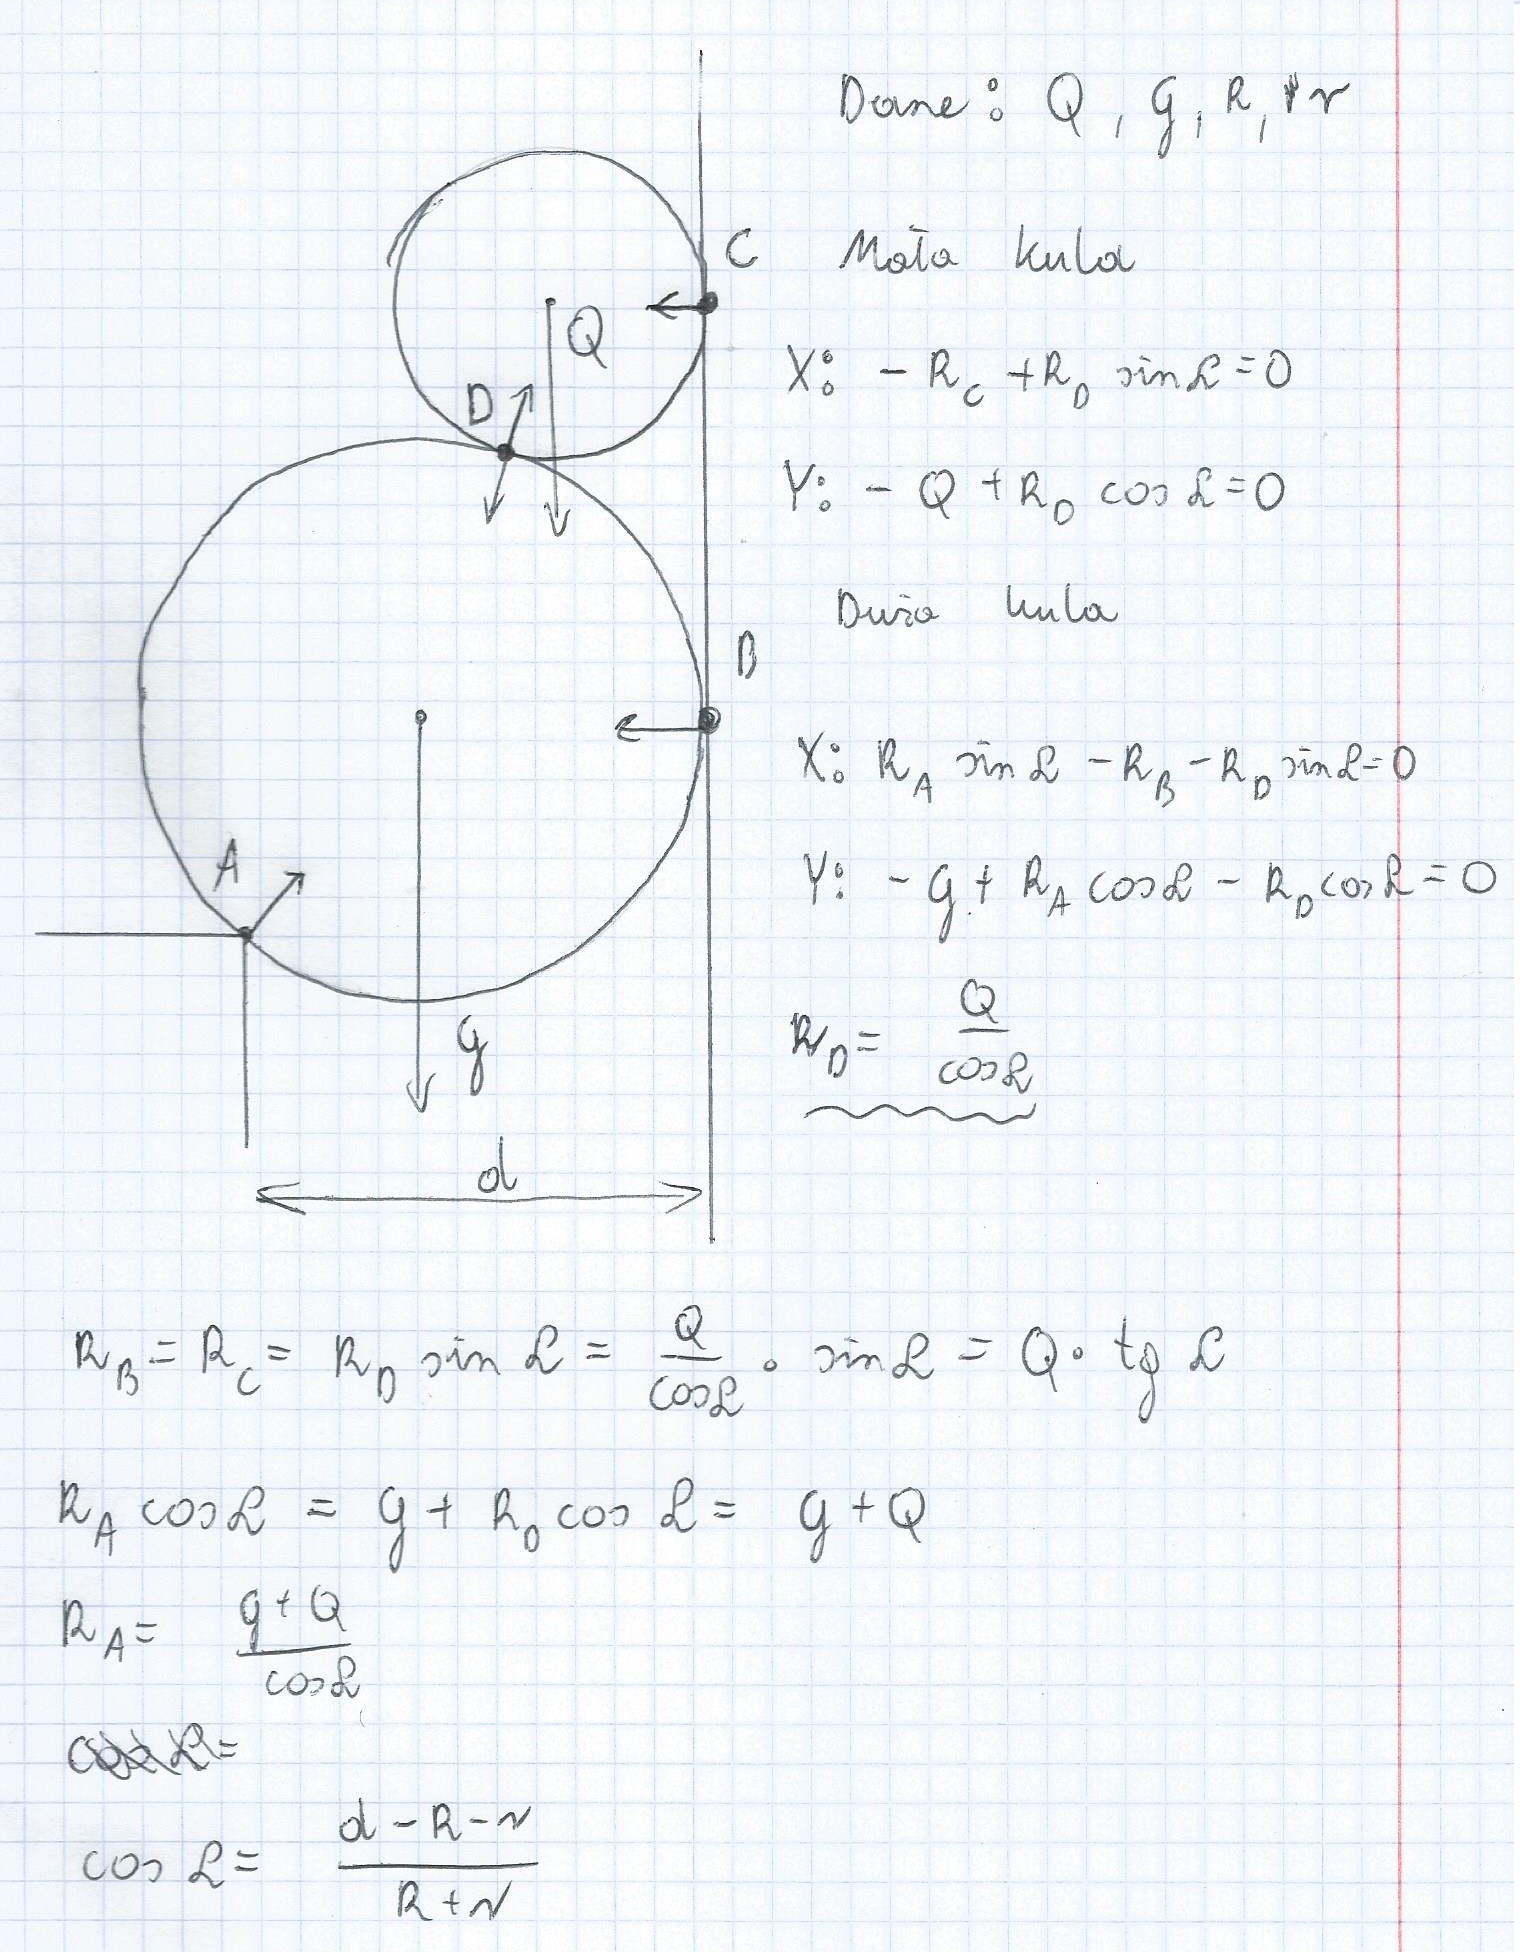 Dane: Q, G, R, r
C
Mała kula
Q
X: - R_C + R_D sin α = 0
D
Y: - Q + R_D cos α = 0
Duża kula
B
X: R_A sin α - R_B - R_D sin α = 0
A
Y: - G + R_A cos α - R_D cos α = 0
R_D = Q / cos α
G
d
R_B = R_C = R_D sin α = Q / cos α · sin α = Q · tg α
R_A cos α = G + R_D cos α = G + Q
R_A = G + Q / cos α
cos α = d - R - r / R + r